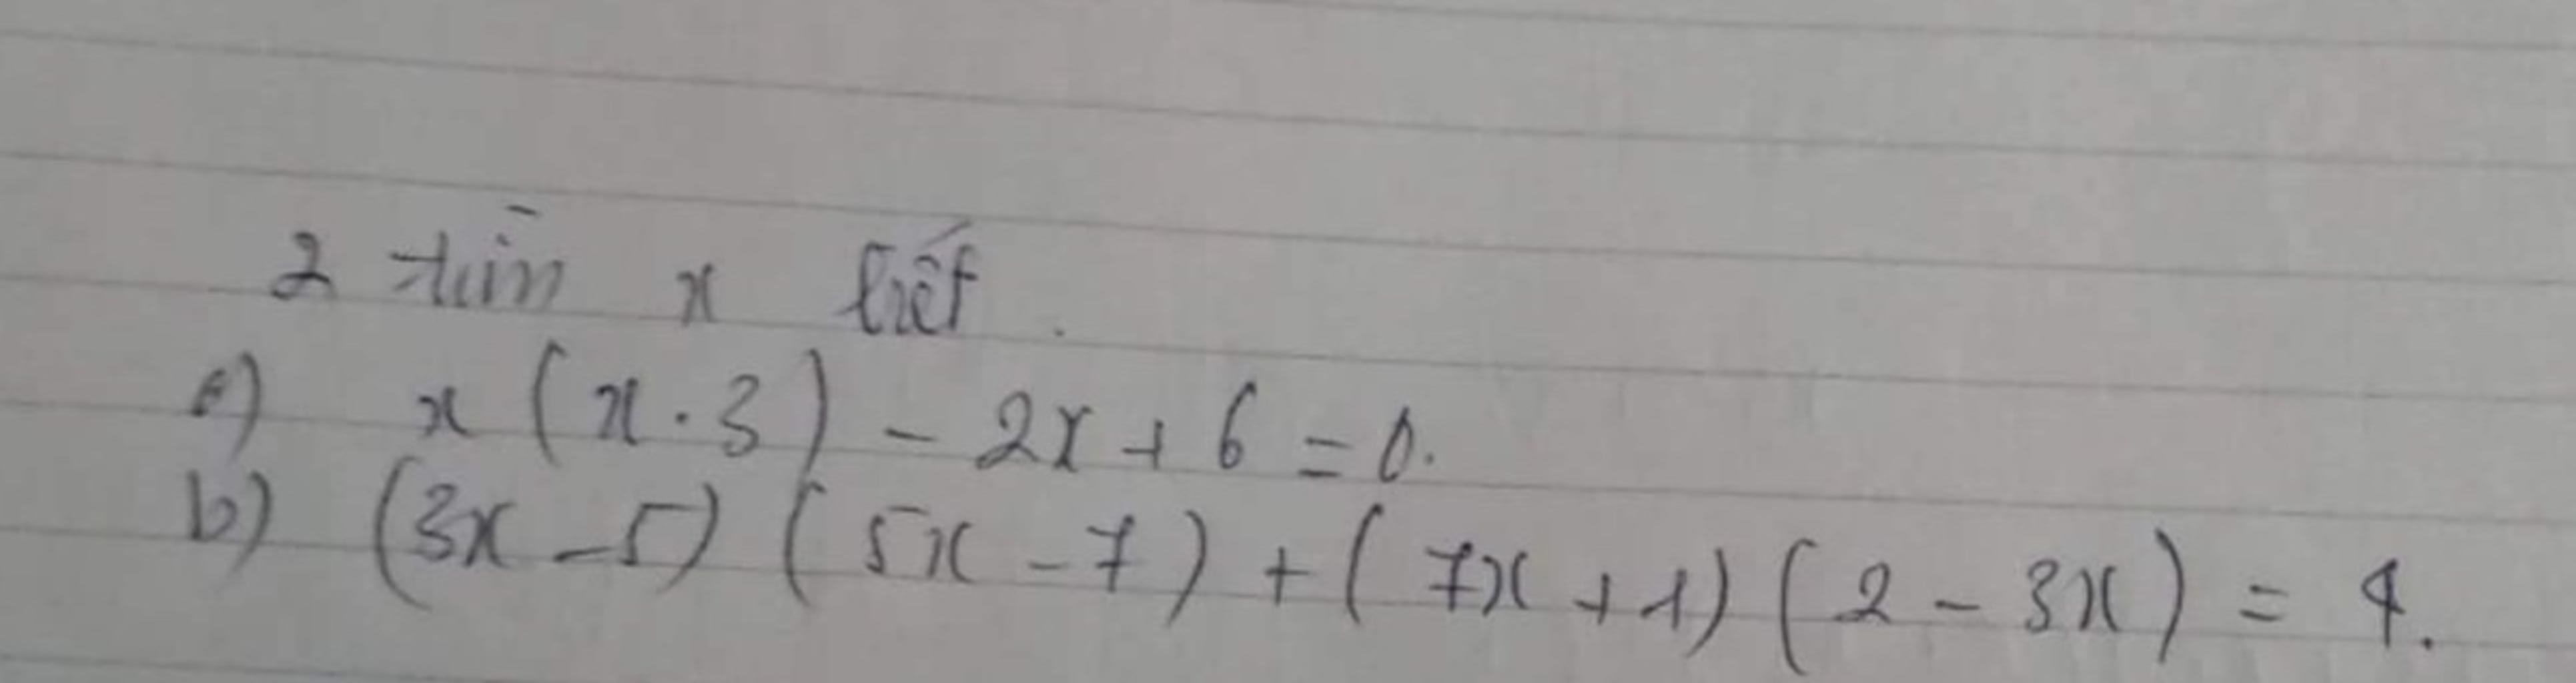 2 tìm x biết.
a) x(x-3) - 2x + 6 = 0.
b) (3x - 5)(5x - 7) + (7x + 1)(2 - 3x) = 4.